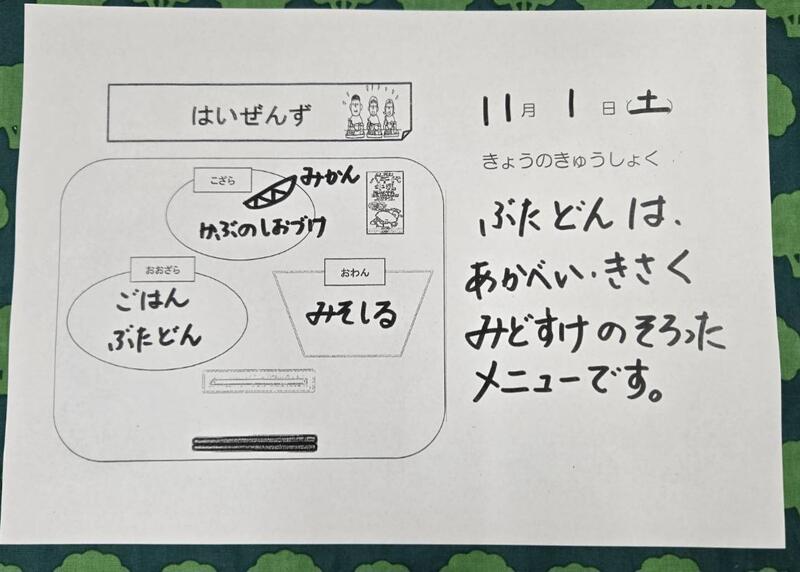 はいぜんず
11月 1日(土)
きょうのきゅうしょく
ぶたどんは、
あかべい・きさく
みどすけのそろった
メニューです。
こざら
みかん
かぶのしおづけ
おおざら
ごはん
ぶたどん
おわん
みそしる